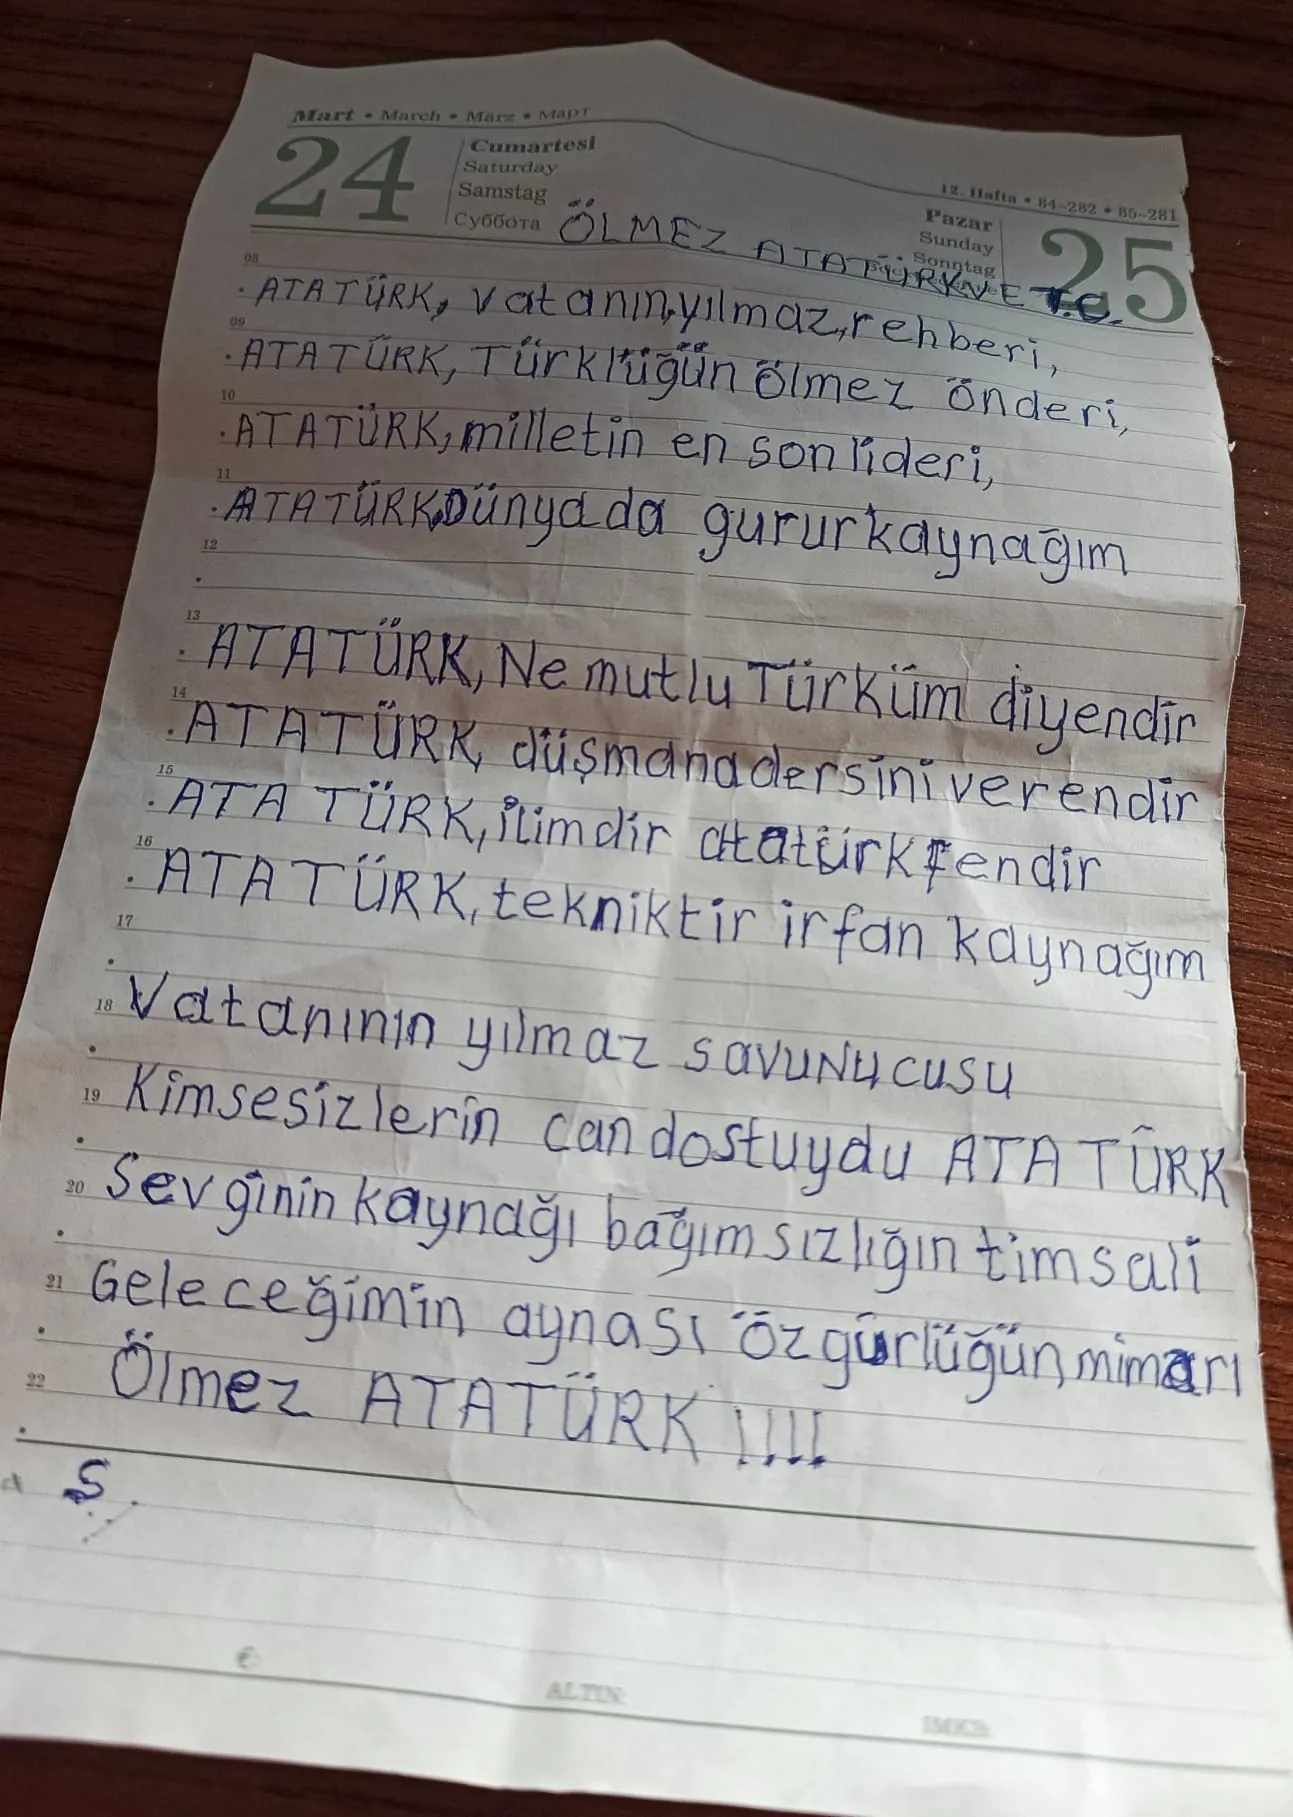 Mart • March • März • Март
24
Cumartesi
Saturday
Samstag
Суббота
12. Hafta • 84-282 • 85-281
Pazar
Sunday
Sonntag
25
ÖLMEZ ATATÜRK VE T.C.
08 ATATÜRK, vatanın, yılmaz, rehberi,
09 ATATÜRK, Türklüğün ölmez önderi,
10 ATATÜRK, milletin en son lideri,
11 ATATÜRK, Dünyada gurur kaynağım
12
13 ATATÜRK, Ne mutlu Türküm diyendir
14 ATATÜRK, düşmana dersini verendir
15 ATATÜRK, ilimdir atatürk fendir
16 ATATÜRK, tekniktir irfan kaynağım
17
18 Vatanının yılmaz savunucusu
19 Kimsesizlerin can dostuydu ATATÜRK
20 Sevginin kaynağı bağımsızlığın timsali
21 Geleceğimin aynası özgürlüğün mimarı
22 Ölmez ATATÜRK !!!!
S.
€:
ALTIN:
İMKB: